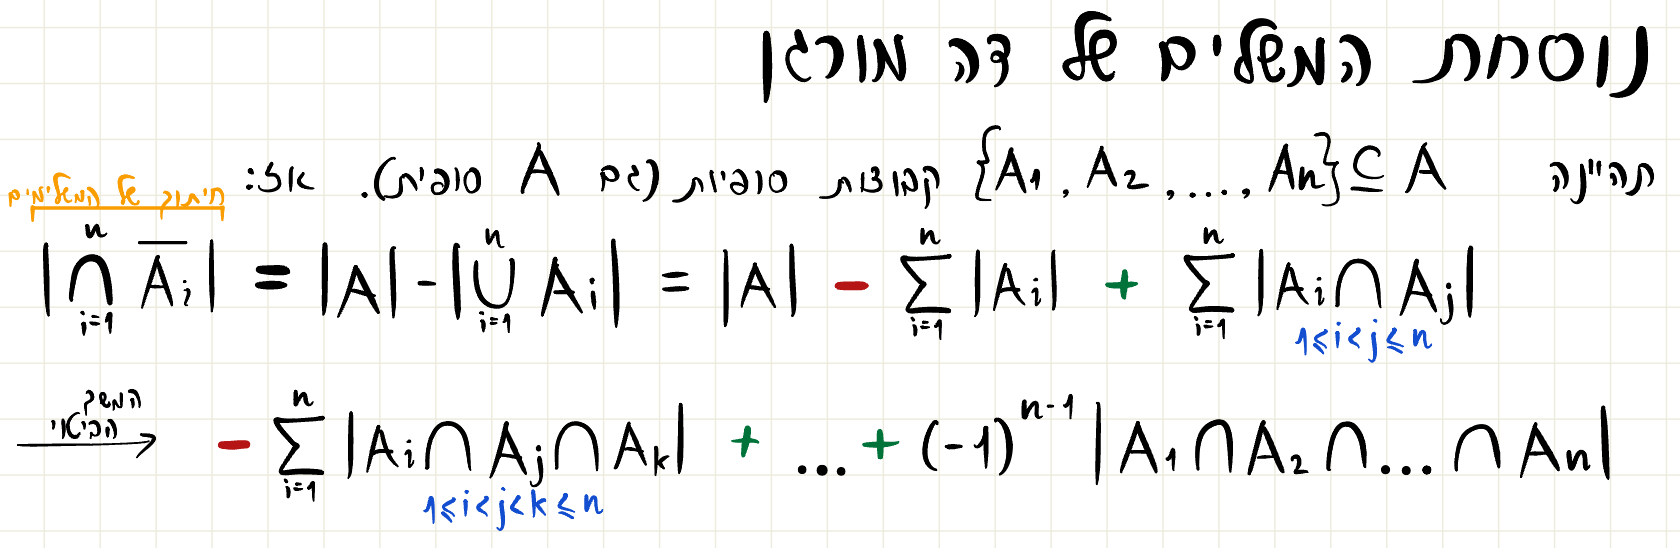 נוסחת המשלים של דה מורגן
תהיינה {A₁, A₂, ..., Aₙ} ⊆ A קבוצות סופיות (גם A סופית). אז:
חיתוך של המשלימים
|⋂ᵢ₌₁ⁿ A̅ᵢ| = |A| - |⋃ᵢ₌₁ⁿ Aᵢ| = |A| - ∑ᵢ₌₁ⁿ |Aᵢ| + ∑ᵢ₌₁ⁿ |Aᵢ ⋂ Aⱼ|
1≤i<j≤n
המשך
הביטוי
→ - ∑ᵢ₌₁ⁿ |Aᵢ ⋂ Aⱼ ⋂ Aₖ| + ... + (-1)ⁿ⁻¹ |A₁ ⋂ A₂ ⋂ ... ⋂ Aₙ|
1≤i<j<k≤n